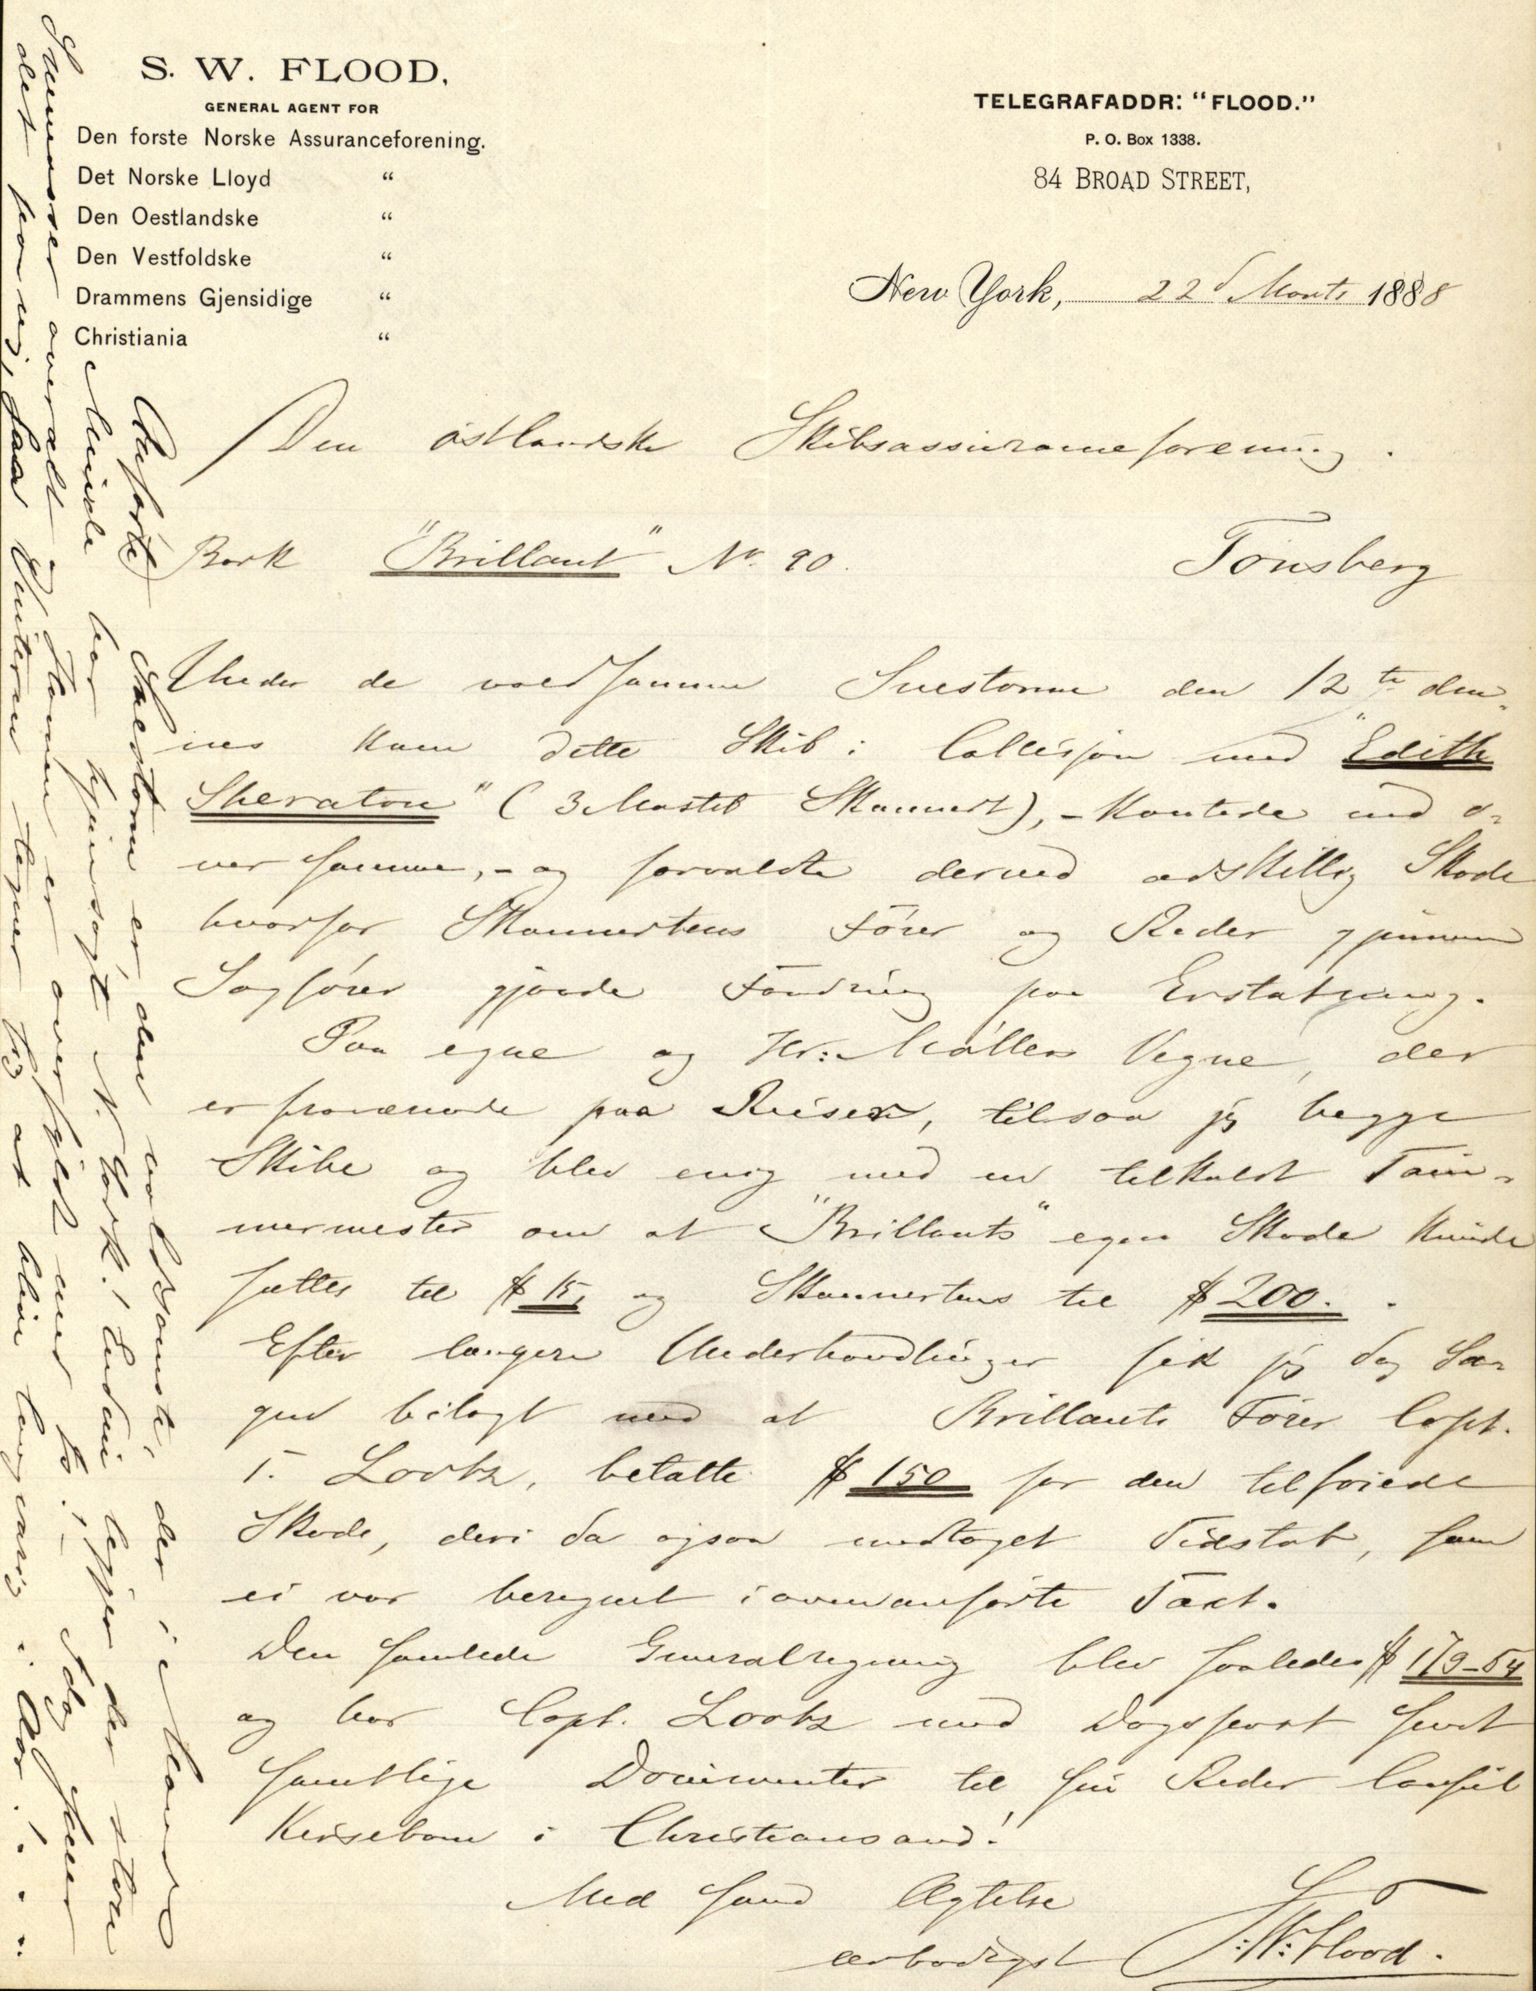 S. W. FLOOD,
GENERAL AGENT FOR
Den forste Norske Assuranceforening.
Det Norske Lloyd "
Den Oestlandske "
Den Vestfoldske "
Drammens Gjensidige "
Christiania "
TELEGRAFADDR: "FLOOD."
P. O. Box 1338.
84 BROAD STREET,
New York, 22d Marts 1888
Den østlandske Skibsassuranceforening.
Bark "Brillant" No. 90. Tönsberg
Under de voldsomme Snestorme den 12te den-
nes kom dette Skib i Collisjon med "Edith
Sheraton" (3 Mastet Skonnert), - Kantede ind o-
ver samme, - og forvoldte derved adskillig Skade
hvorfor Skonnertens Fører og Reder gjennem
Sagfører gjorde Fordring paa Erstatning.
Paa egne og Hr: Møllers Vegne, der
er fraværende paa Reiser, tilsaa jeg begge
Skibe og blev enig med en tilkaldt Tøm-
mermester om at "Brillants" egen Skade kunde
sættes til $ 15, og Skonnertens til $ 200.
Efter længere Underhandlinger fik jeg dog Sa-
gen bilagt med at Brillants Fører Capt.
T. Lootz, betalte $ 150 for den tilføiede
Skade, deri da ogsaa medtaget Tidstab, som
ei var beregnet i ovenanførte Taxt.
Den samlede Generalregning blev saaledes $ 179-54
og har Capt. Lootz med Dagspost sendt
samtlige Documenter til sin Reder Consul
Reisebom i Christiansand.
Med sand Agtelse
ærbødigst S: W: Flood.
Anførte Snestorm er den voldsomste, der i Mands
Minde har hjemsøgt N. York! Endnu ligger der store
Snemasser overalt - Flommen er overfyldt med Is; - dog
det for mig, saa Vinteren tegner til at blive langvarig i Aar!